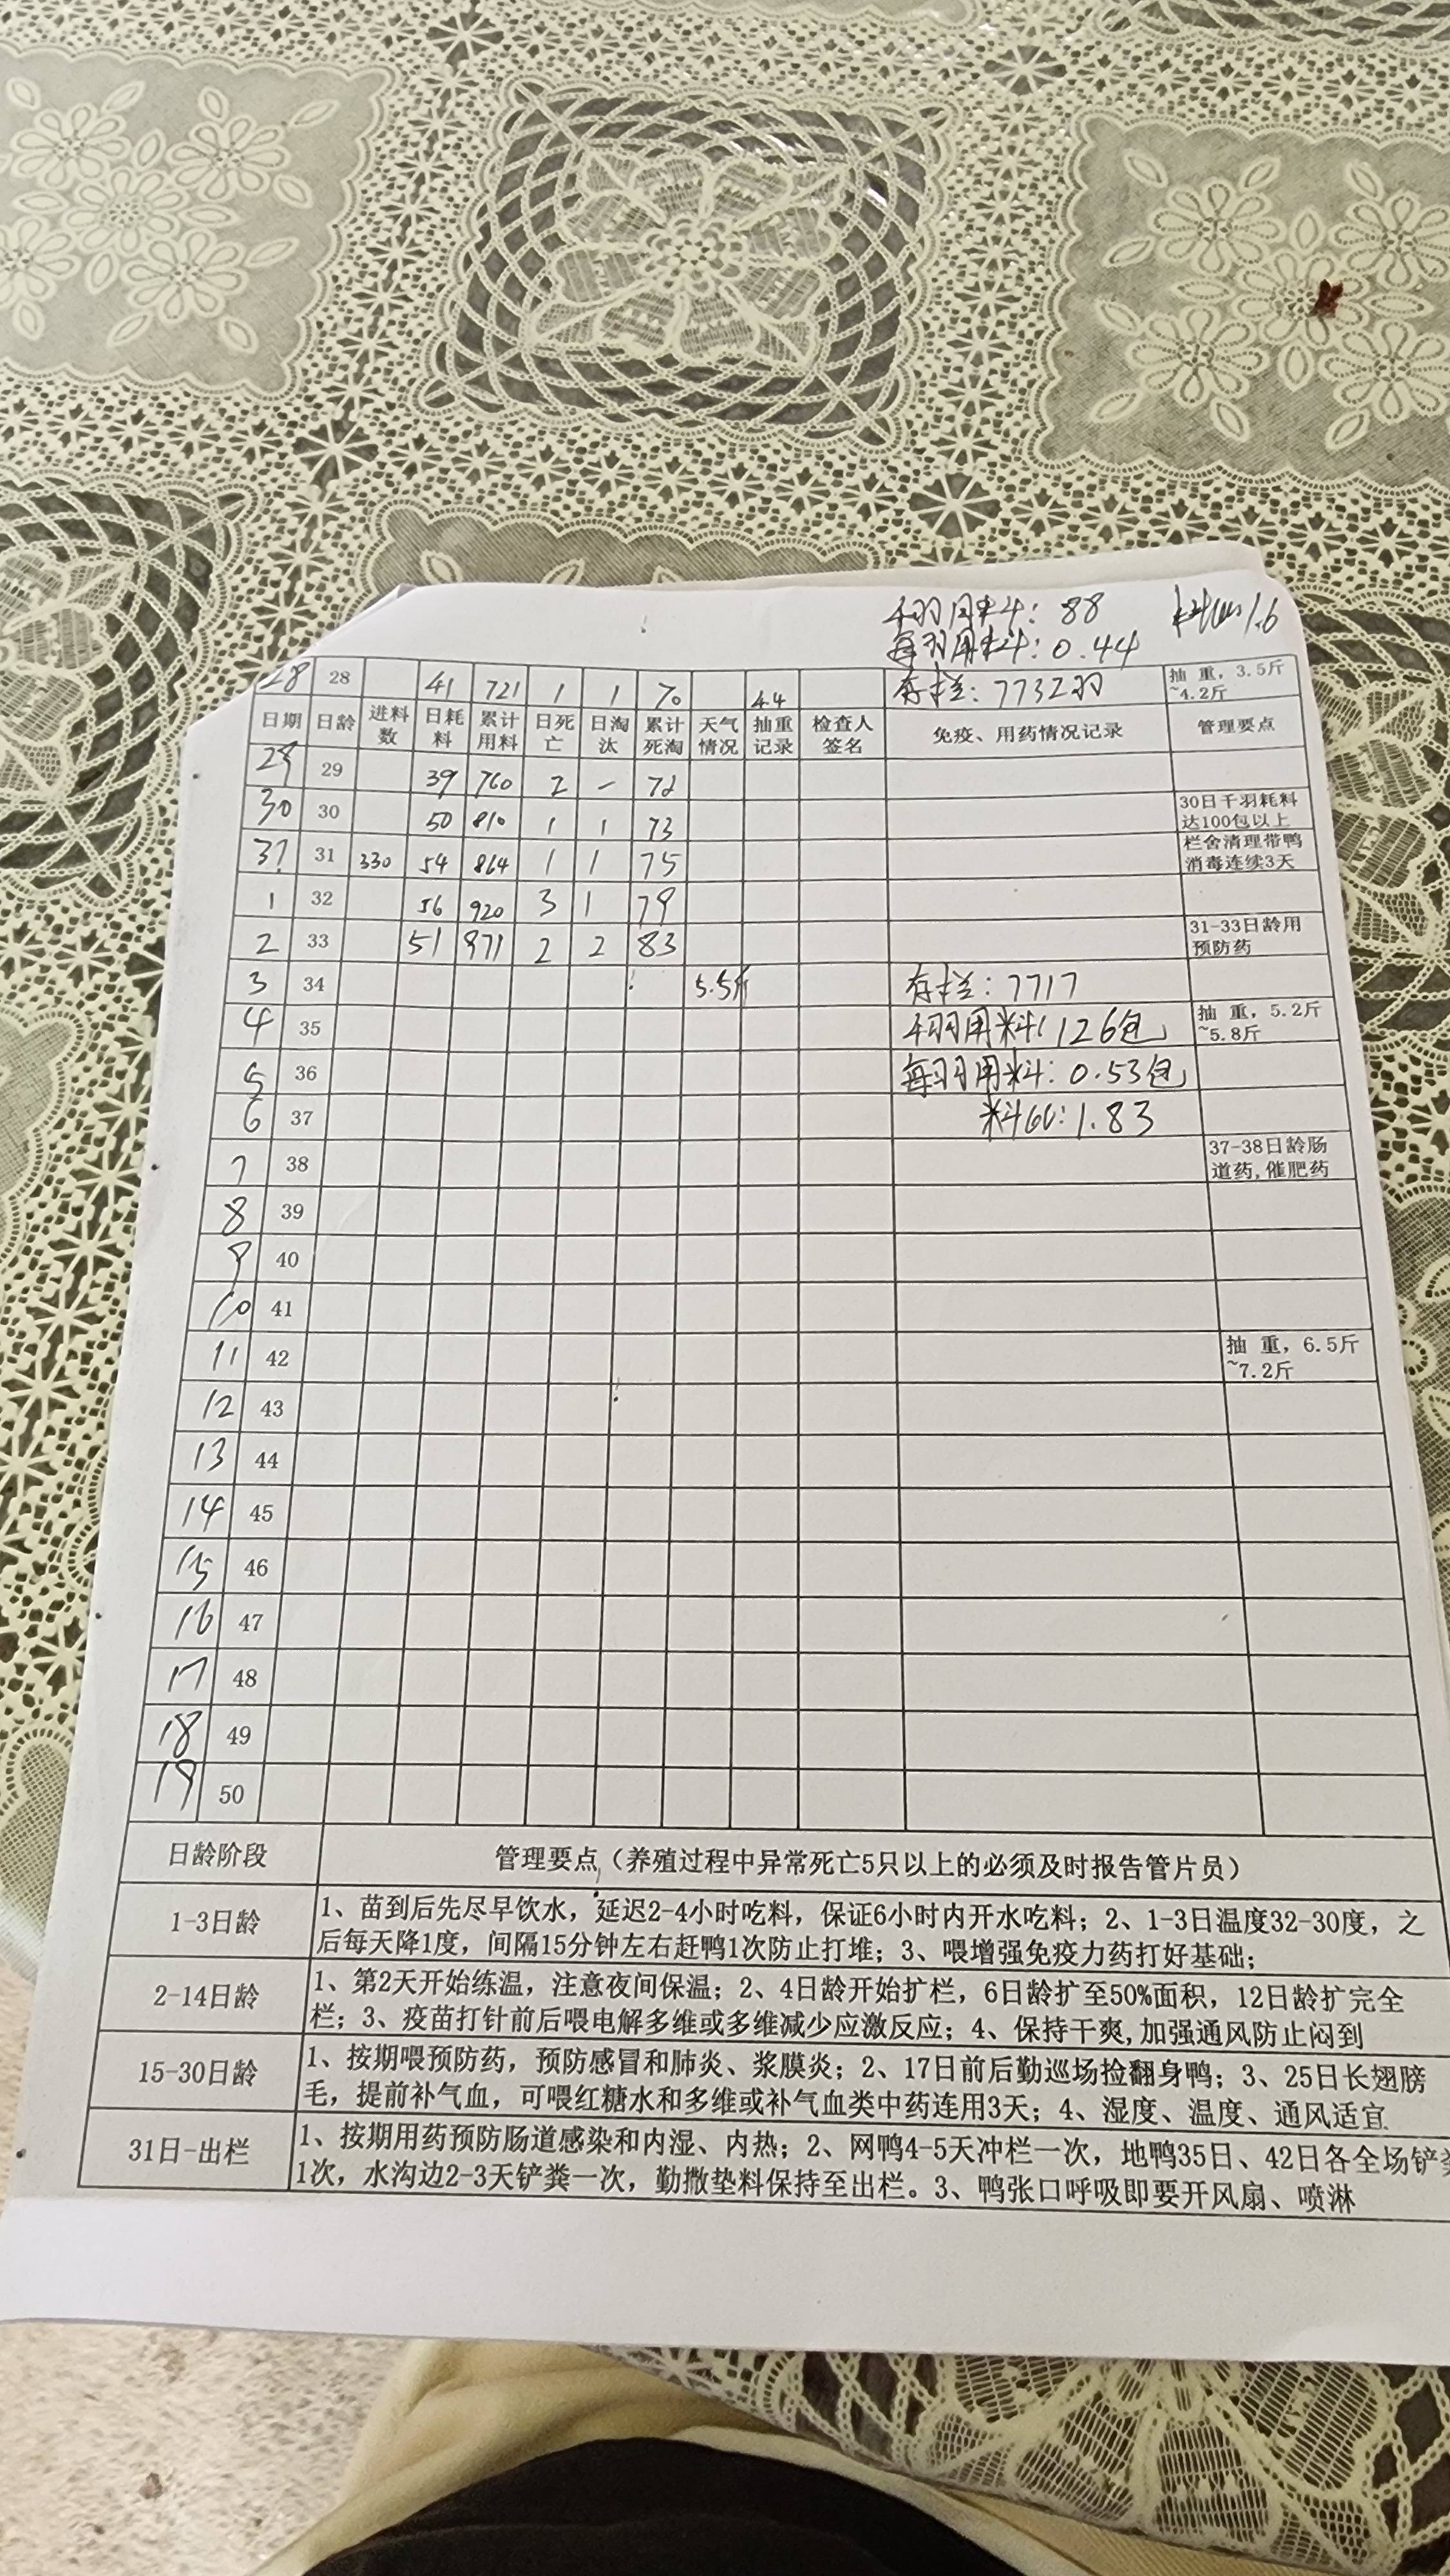 千羽用料: 88 料比1.6
每羽用料: 0.44
28 28 41 721 1 1 70 44 存栏: 7732羽 抽 重, 3.5斤~4.2斤
日期 日龄 进料数 日耗料 累计用料 日死亡 日淘汰 累计死淘 天气情况 抽重记录 检查人签名 免疫、用药情况记录 管理要点
29 29 39 760 2 - 72
30 30 50 810 1 1 73 30日千羽耗料达100包以上
31 31 330 54 864 1 1 75 栏舍清理带鸭消毒连续3天
1 32 56 920 3 1 79
2 33 51 971 2 2 83 31-33日龄用预防药
3 34 5.5斤 存栏: 7717
4 35 千羽用料: 126包 抽 重, 5.2斤~5.8斤
5 36 每羽用料: 0.53包
6 37 料比: 1.83
7 38 37-38日龄肠道药,催肥药
8 39
9 40
10 41
11 42 抽 重, 6.5斤~7.2斤
12 43
13 44
14 45
15 46
16 47
17 48
18 49
19 50
日龄阶段 管理要点（养殖过程中异常死亡5只以上的必须及时报告管片员）
1-3日龄 1、苗到后先尽早饮水，延迟2-4小时吃料，保证6小时内开水吃料；2、1-3日温度32-30度，之
后每天降1度，间隔15分钟左右赶鸭1次防止打堆；3、喂增强免疫力药打好基础；
2-14日龄 1、第2天开始练温，注意夜间保温；2、4日龄开始扩栏，6日龄扩至50%面积，12日龄扩完全
栏；3、疫苗打针前后喂电解多维或多维减少应激反应；4、保持干爽,加强通风防止闷到
15-30日龄 1、按期喂预防药，预防感冒和肺炎、浆膜炎；2、17日前后勤巡场捡翻身鸭；3、25日长翅膀
毛，提前补气血，可喂红糖水和多维或补气血类中药连用3天；4、湿度、温度、通风适宜
31日-出栏 1、按期用药预防肠道感染和内湿、内热；2、网鸭4-5天冲栏一次，地鸭35日、42日各全场铲粪
1次，水沟边2-3天铲粪一次，勤撒垫料保持至出栏。3、鸭张口呼吸即要开风扇、喷淋